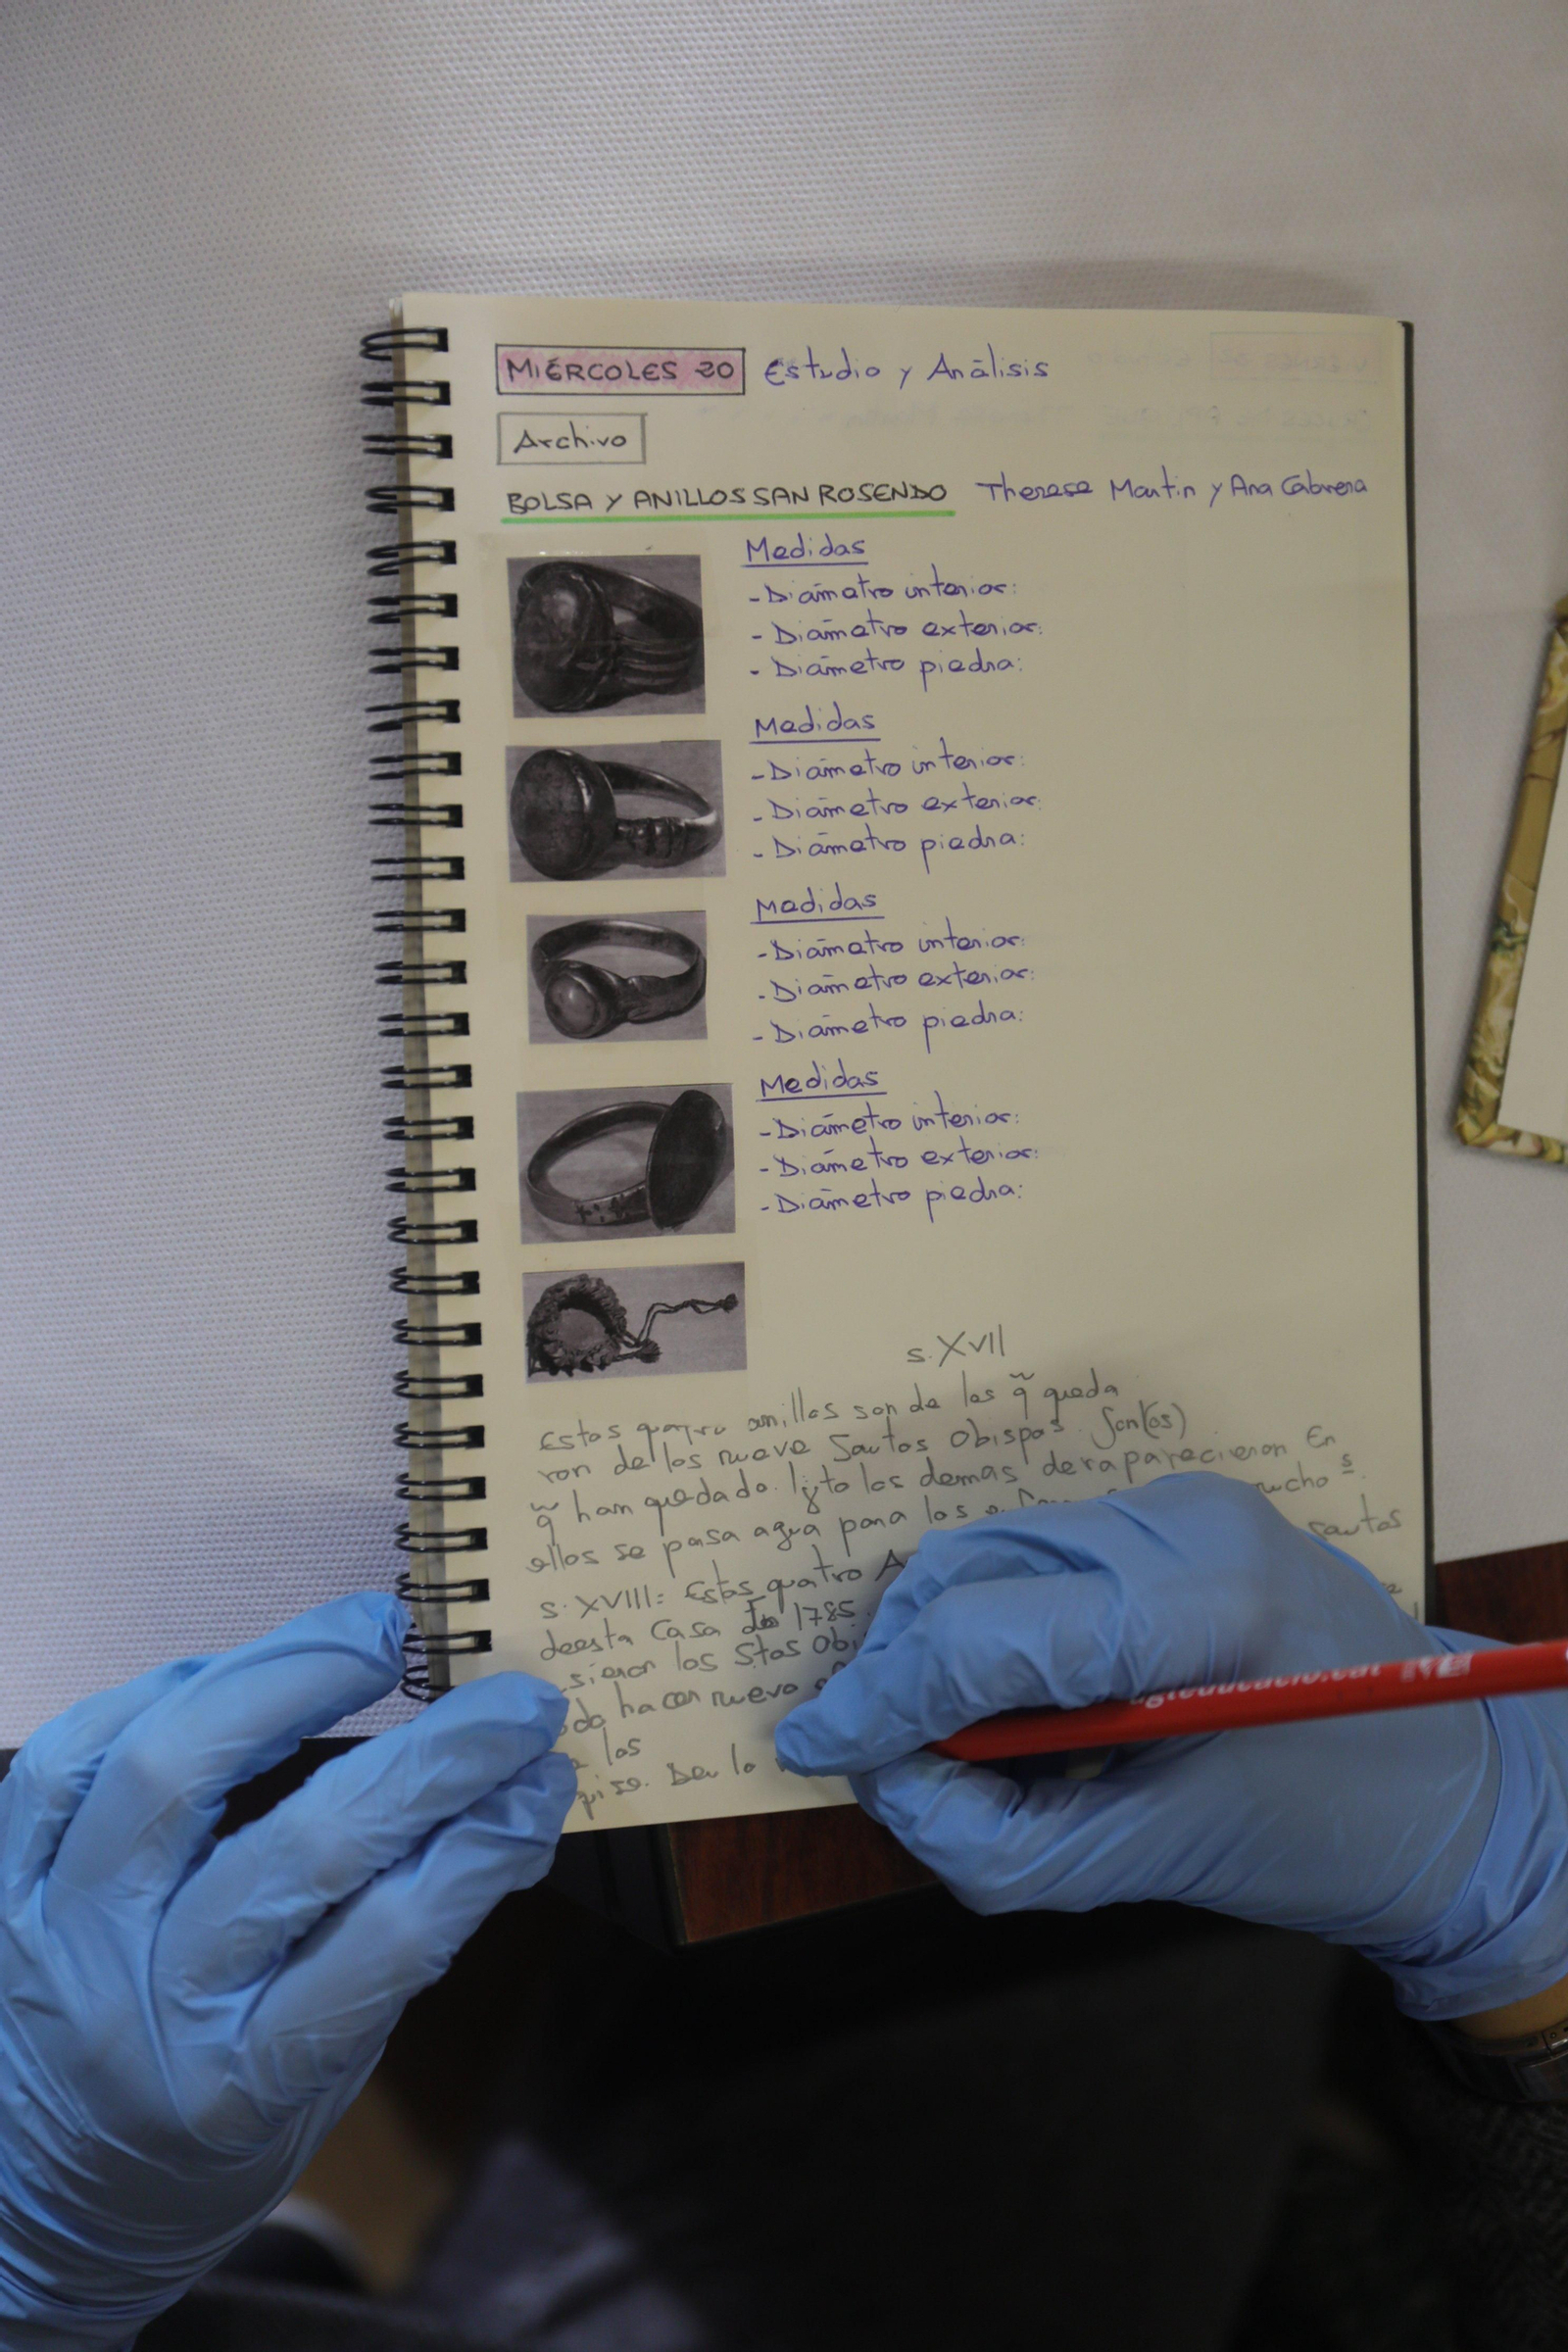 MIÉRCOLES 20 Estudio y Análisis
Archivo
BOLSA Y ANILLOS SAN ROSENDO Therese Martin y Ana Cabrera
Medidas
- Diámetro interior:
- Diámetro exterior:
- Diámetro piedra:
Medidas
- Diámetro interior:
- Diámetro exterior:
- Diámetro piedra:
Medidas
- Diámetro interior:
- Diámetro exterior:
- Diámetro piedra:
Medidas
- Diámetro interior:
- Diámetro exterior:
- Diámetro piedra:
s. XVII
Estos quatro anillos son de los q̃ queda
ron de los nueve Santos Obispos. Son(os)
q̃ han quedado. los demas desaparecieron En
ellos se pasa agua para los
s. XVIII: Estos quatro santos
deesta Casa 1785.
los Stos
hacen nuevo
los